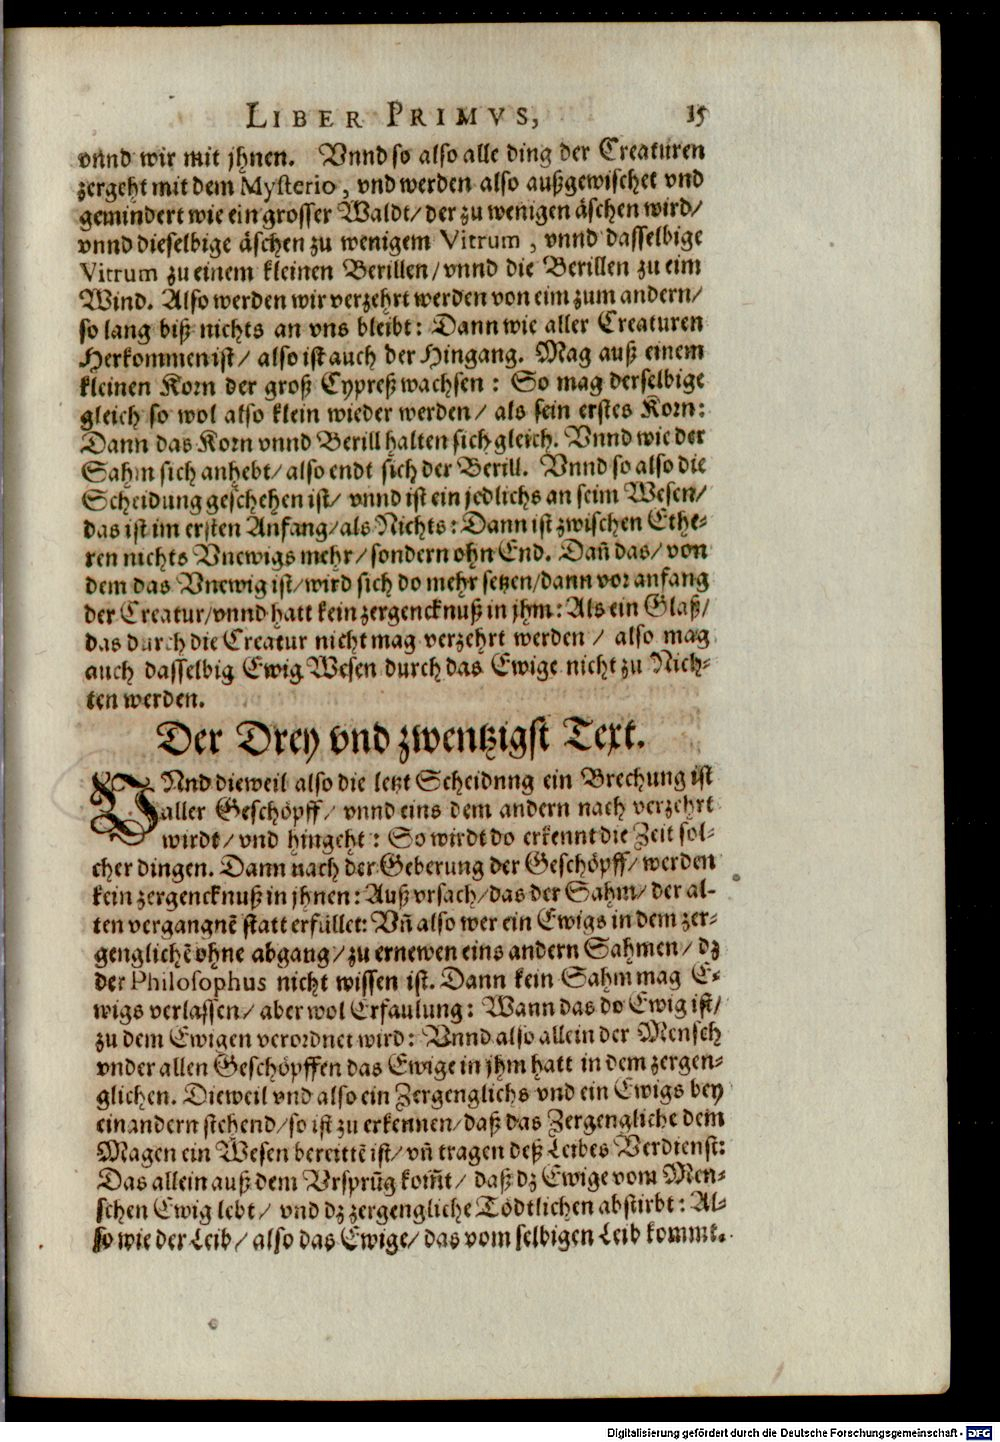 LIBER PRIMVS, 15
vnnd wir mit jhnen. Vnnd so also alle ding der Creaturen
zergeht mit dem Mysterio, vnd werden also außgewischet vnd
gemindert wie ein grosser Waldt/ der zu wenigen äschen wird/
vnnd dieselbige äschen zu wenigem Vitrum, vnnd dasselbige
Vitrum zu einem kleinen Berillen/ vnnd die Berillen zu eim
Wind. Also werden wir verzehrt werden von eim zum andern/
so lang biß nichts an vns bleibt: Dann wie aller Creaturen
Herkommen ist/ also ist auch der Hingang. Mag auß einem
kleinen Korn der groß Cypreß wachsen: So mag derselbige
gleich so wol also klein wieder werden/ als sein erstes Korn:
Dann das Korn vnnd Berill halten sich gleich. Vnnd wie der
Sahm sich anhebt/ also endt sich der Berill. Vnnd so also die
Scheidung geschehen ist/ vnnd ist ein jedlichs an seim Wesen/
das ist im ersten Anfang/ als Nichts: Dann ist zwischen Ethe-
ren nichts Vnewigs mehr/ sondern ohn End. Dañ das/ von
dem das Vnewig ist/ wird sich do mehr setzen/ dann vor anfang
der Creatur/ vnnd hatt kein zergencknuß in jhm: Als ein Glaß/
das durch die Creatur nicht mag verzehrt werden/ also mag
auch dasselbig Ewig Wesen durch das Ewige nicht zu Nich-
ten werden.
Der Drey vnd zwentzigst Text.
VNnd dieweil also die letzt Scheidnng ein Brechung ist
aller Geschöpff/ vnnd eins dem andern nach verzehrt
wirdt/ vnd hingeht: So wirdt do erkennt die Zeit sol-
cher dingen. Dann nach der Geberung der Geschöpff/ werden
kein zergencknuß in jhnen: Auß vrsach/ das der Sahm/ der al-
ten vergangnẽ statt erfüllet: Vñ also wer ein Ewigs in dem zer-
genglichẽ ohne abgang/ zu ernewen eins andern Sahmen/ dz
der Philosophus nicht wissen ist. Dann kein Sahm mag E-
wigs verlassen/ aber wol Erfaulung: Wann das do Ewig ist/
zu dem Ewigen verordnet wird: Vnnd also allein der Mensch
vnder allen Geschöpffen das Ewige in jhm hatt in dem zergen-
glichen. Dieweil vnd also ein Zergenglichs vnd ein Ewigs bey
einandern stehend/ so ist zu erkennen/ daß das Zergengliche dem
Magen ein Wesen bereittẽ ist/ vñ tragen deß Leibes Verdienst:
Das allein auß dem Vrsprũg kom̃t/ daß dz Ewige vom Men-
schen Ewig lebt/ vnd dz zergengliche Tödtlichen abstirbt: Al-
so wie der Leib/ also das Ewige/ das vom selbigen Leib kommt.
Digitalisierung gefördert durch die Deutsche Forschungsgemeinschaft - DFG